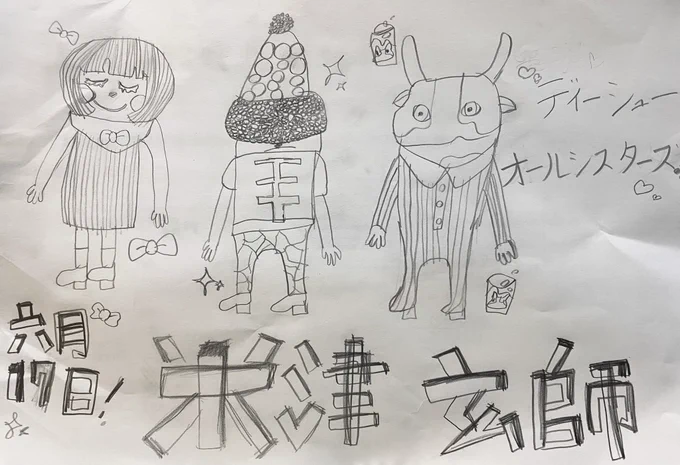 ディーシュー
オールシスターズ。
六月
17日!
米津玄師